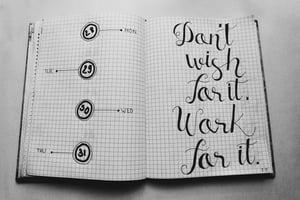 28 MON
TUE 29
30 WED
THU 31
Don't
wish
for it.
Work
for it.